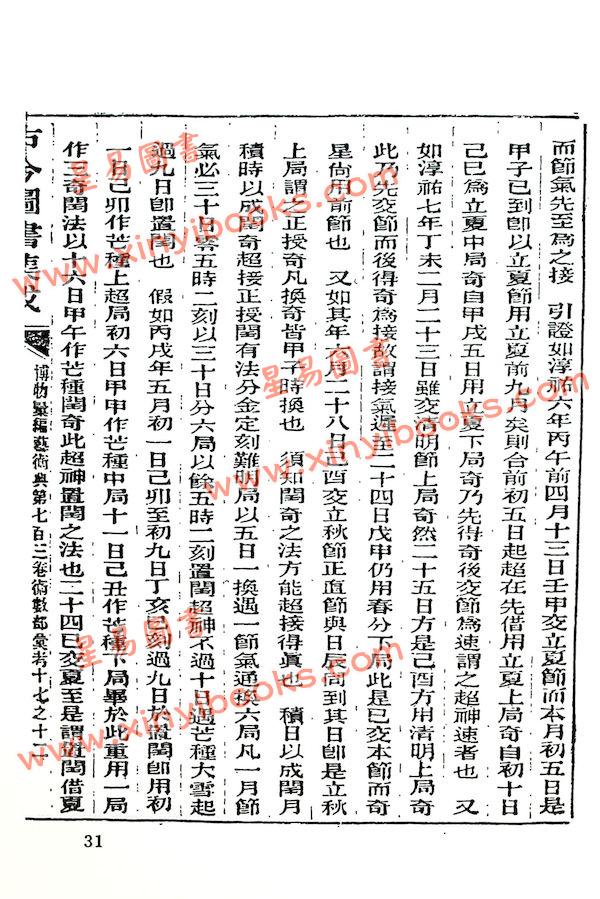 而節氣先至爲之接　引證如淳祐六年丙午前四月十三日壬甲交立夏節而本月初五日是
甲子已到卽以立夏節用立夏前九月矣則合前初五日起超在先借用立夏上局奇自初十日
己巳爲立夏中局奇自甲戌五日用立夏下局奇乃先得奇後交節爲速謂之超神速者也　又
如淳祐七年丁未二月二十三日雖交清明節上局奇然二十五日方是己酉方用清明上局奇
此乃先交節而後得奇爲接故謂接氣遲至二十四日戊甲仍用春分下局此是已交本節而奇
星尙用前節也　又如其年六月二十八日己酉交立秋節正直節與日辰同到其日卽是立秋
上局謂之正授奇凡換奇皆甲子時換也　須知閏奇之法方能超接得眞也　積日以成閏月
積時以成閏奇超接正授閏有法分金定刻難明局以五日一換遇一節氣通換六局凡一月節
氣必三十日零五時二刻以三十日分六局以餘五時二刻置閏超神不過十日遇芒種大雪起
過九日卽置閏也　假如丙戌年五月初一日己卯至初九日丁亥巳刻過九日於置閏卽用初
一日己卯作芒種上超局初六日甲申作芒種中局十一日己丑作芒種下局畢於此重用一局
作三奇閏法以十六日甲午作芒種閏奇此超神置閏之法也二十四巳交夏至是謂置閏借夏
古今圖書集成
博物彙編藝術典第七百三卷術數部彙考十七之十二
31
星易圖書
www.xinyibooks.com
星易圖書
www.xinyibooks.com
星易圖書
www.xinyibooks.com